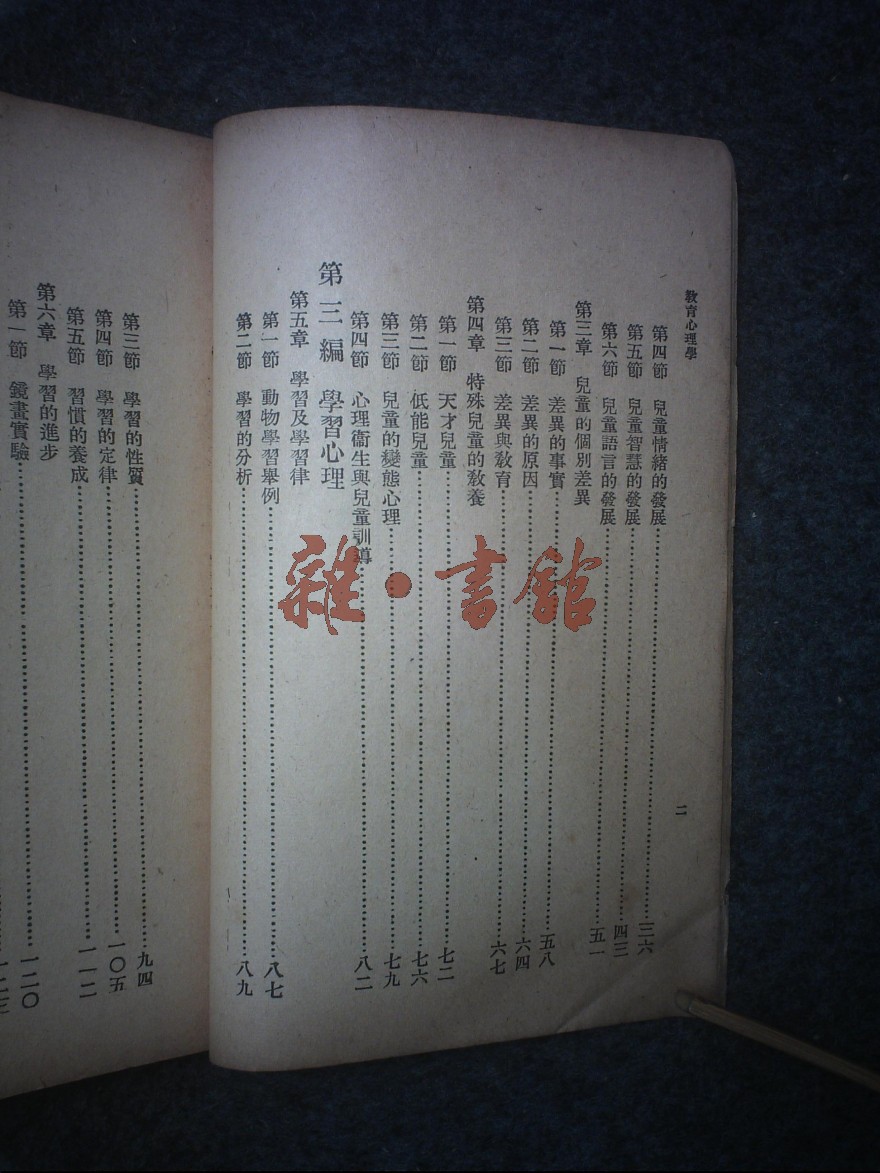 教育心理學
二
第四節 兒童情緒的發展……三六
第五節 兒童智慧的發展……四三
第六節 兒童語言的發展……五一
第三章 兒童的個別差異
第一節 差異的事實……五八
第二節 差異的原因……六四
第三節 差異與教育……六七
第四章 特殊兒童的教養
第一節 天才兒童……七二
第二節 低能兒童……七六
第三節 兒童的變態心理……七九
第四節 心理衞生與兒童訓導……八二
第三編 學習心理
第五章 學習及學習律
第一節 動物學習舉例……八七
第二節 學習的分析……八九
第三節 學習的性質……九四
第四節 學習的定律……一〇五
第五節 習慣的養成……一一二
第六章 學習的進步
第一節 鏡畫實驗……一二〇
雜·書館